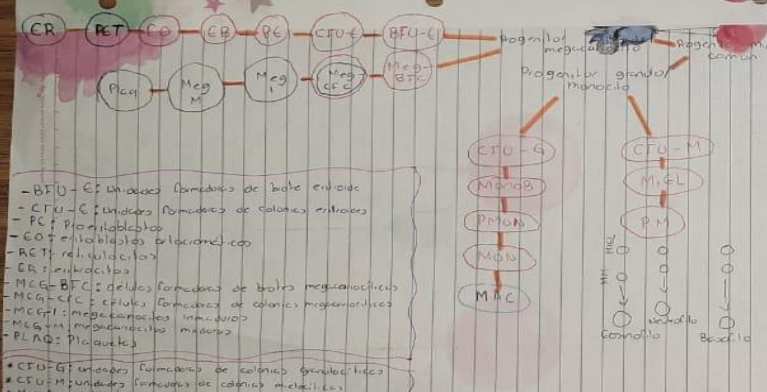 ER RET EO EB PE CFU-E BFU-E Progenitor megacar Progenito m
comun
Plaq Meg M Meg I Meg CFC Meg-BFC
Progenitor granulo/
monocito
CFU-G CFU-M
MonoB MIEL
PMON PM
MON
MAC
MIEL
MM
Eosinofilo Neutrofilo Basofilo
- BFU-E: Unidades formadoras de brote eritroide
- CFU-E: unidades formadoras de colonias eritroides
- PE: Proeritoblastos
- EO: eritoblastos ortocromáticos
- RET: reticulocitos
- ER: eritrocitos
- MEG-BFC: células formadoras de brotes megacariociticos
- MEG-CFC: células formadoras de colonias megacariociticas
- MEG-I: megacariocitos inmaduros
- MEG-M: megacariocitos maduros
- PLAQ: Plaquetas
• CFU-G: unidades formadoras de colonias granulociticas
• CFU-M: unidades formadoras de colonias mielociticas